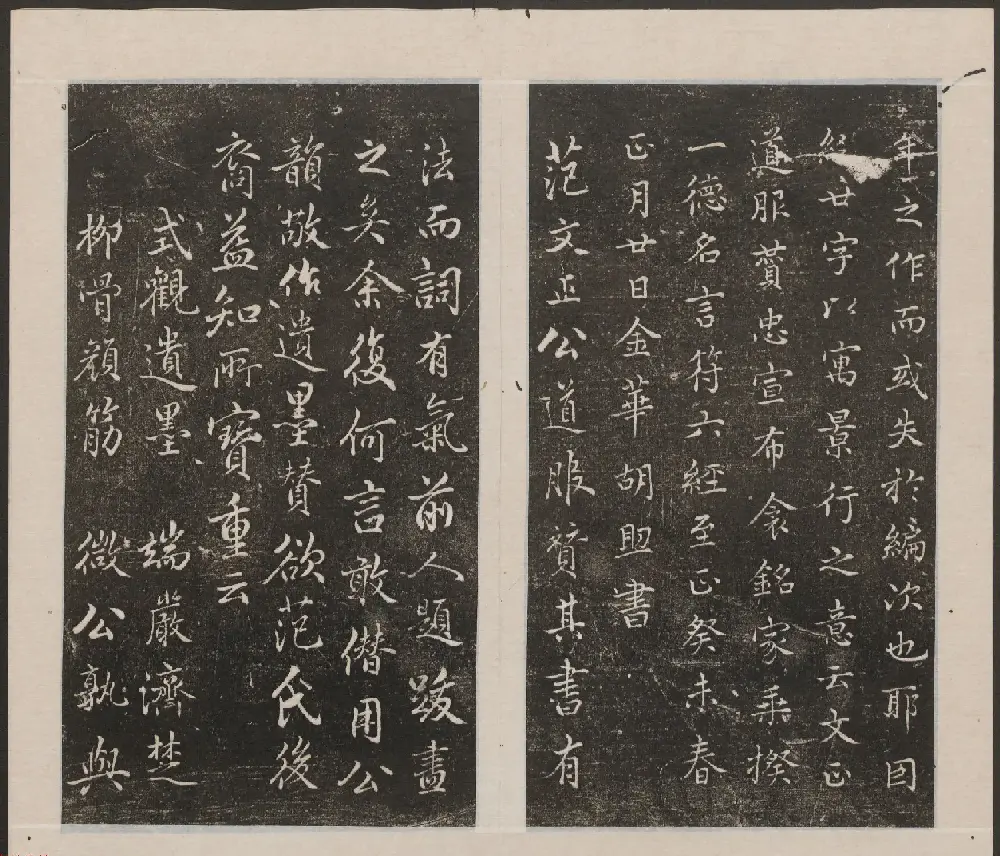 年之作而或失於編次也耶因
綴廿字以寓景行之意云文正
道服贊忠宣布衾銘家乗揆
一德名言符六經至正癸未春
正月廿日金華胡助書
范文正公道服贊其書有
法而詞有氣前人題跋盡
之矣余復何言敢僭用公
韻敬作遺墨贊欲范氏後
裔益知所寶重云
式觀遺墨 端嚴濟楚
柳骨顔筋 微公孰與